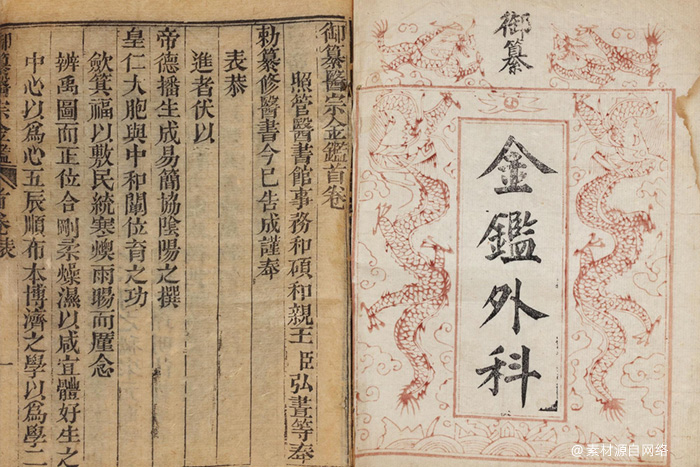 御纂
金鑑外科
御纂醫宗金鑑首卷
照管醫書館事務和碩和親王臣弘晝等奉
勅纂修醫書今已告成謹奉
表恭
進者伏以
帝德播生成易簡協陰陽之撰
皇仁大胞與中和闡位育之功
歛箕福以敷民統寒燠雨暘而厪念
辨禹圖而正位合剛柔燥濕以咸宜體好生之
中心以爲心五辰順布本博濟之學以爲學二
御纂醫宗金鑑 首卷表 一
@素材源自网络